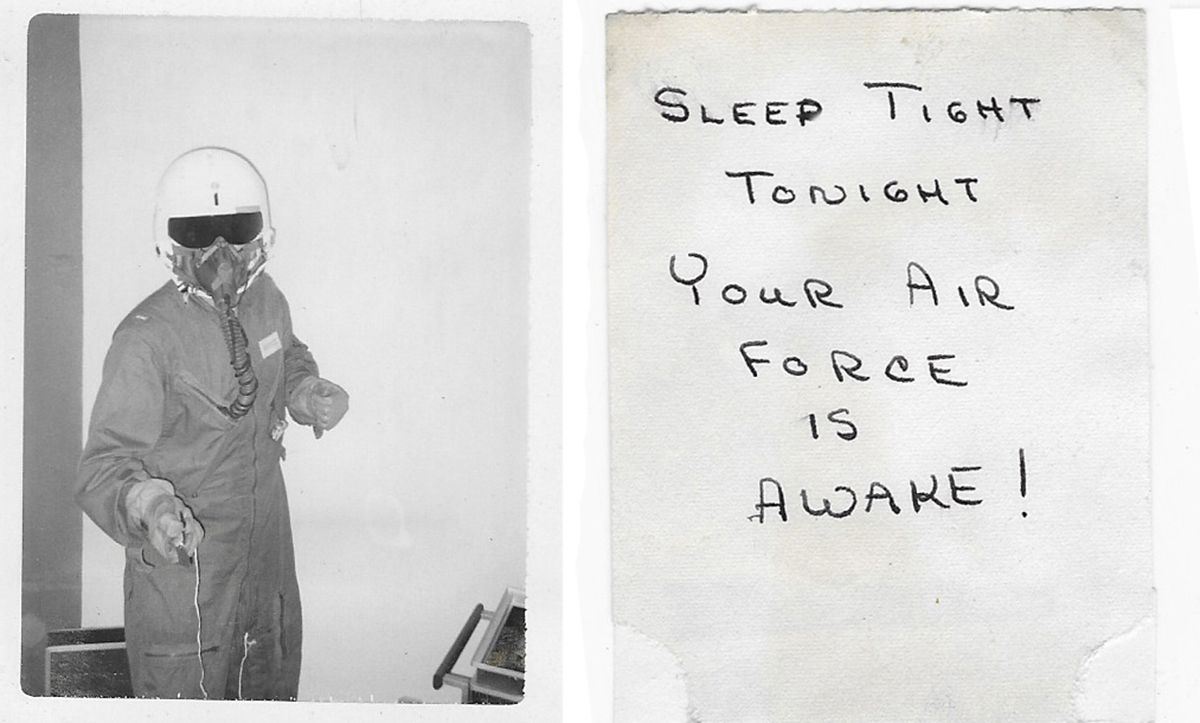 SLEEP TIGHT
TONIGHT
YOUR AIR
FORCE
IS
AWAKE!